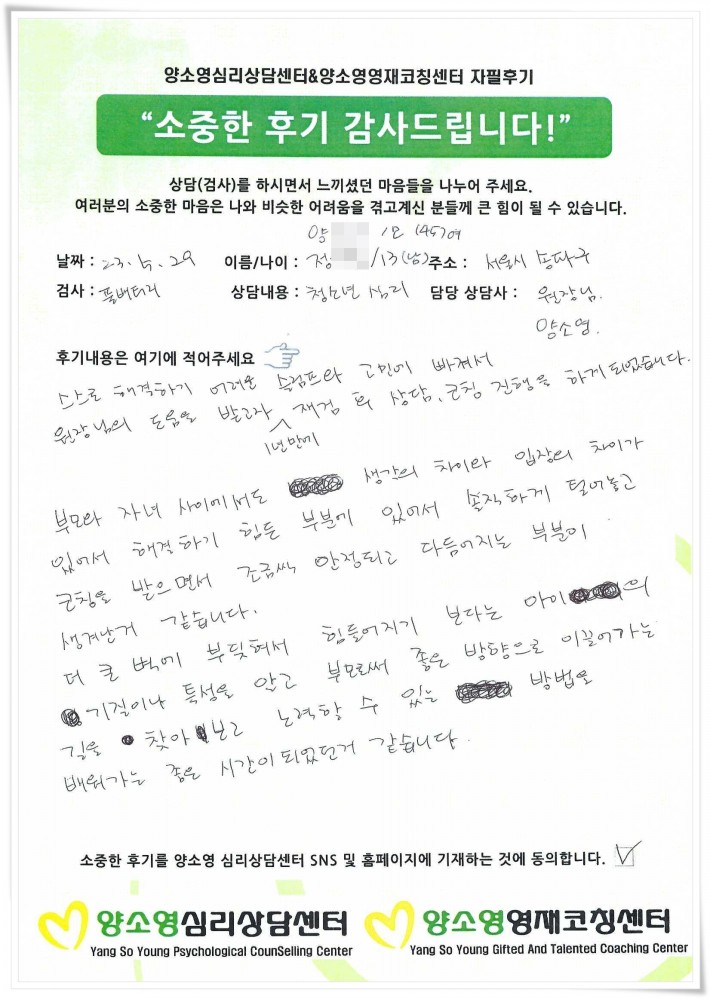 양소영심리상담센터&양소영영재코칭센터 자필후기
“소중한 후기 감사드립니다!”
상담(검사)를 하시면서 느끼셨던 마음들을 나누어 주세요.
여러분의 소중한 마음은 나와 비슷한 어려움을 겪고계신 분들께 큰 힘이 될 수 있습니다.
양 /모 (45)여
날짜 : 23. 5. 29 이름/나이 : 정 /13(남) 주소 : 서울시 송파구
검사 : 풀배터리 상담내용 : 청소년 심리 담당 상담사 : 원장님.
양소영.
후기내용은 여기에 적어주세요
스스로 해결하기 어려운 슬럼프와 고민에 빠져서
원장님의 도움을 받고자 재검 후 상담, 코칭 진행을 하게되었습니다.
1년만에
부모와 자녀 사이에서도 생각의 차이와 입장의 차이가
있어서 해결하기 힘든 부분에 있어서 솔직하게 털어놓고
코칭을 받으면서 조금씩 안정되고 다듬어지는 부분이
생겨난거 같습니다.
더 큰 벽에 부딪혀서 힘들어지기 보다는 아이의
기질이나 특성을 알고 부모로써 좋은 방향으로 이끌어가는
길을 찾아보고 노력할 수 있는 방법을
배워가는 좋은 시간이 되었던거 같습니다.
소중한 후기를 양소영 심리상담센터 SNS 및 홈페이지에 기재하는 것에 동의합니다.
양소영심리상담센터
Yang So Young Psychological CounSelling Center
양소영영재코칭센터
Yang So Young Gifted And Talented Coaching Center